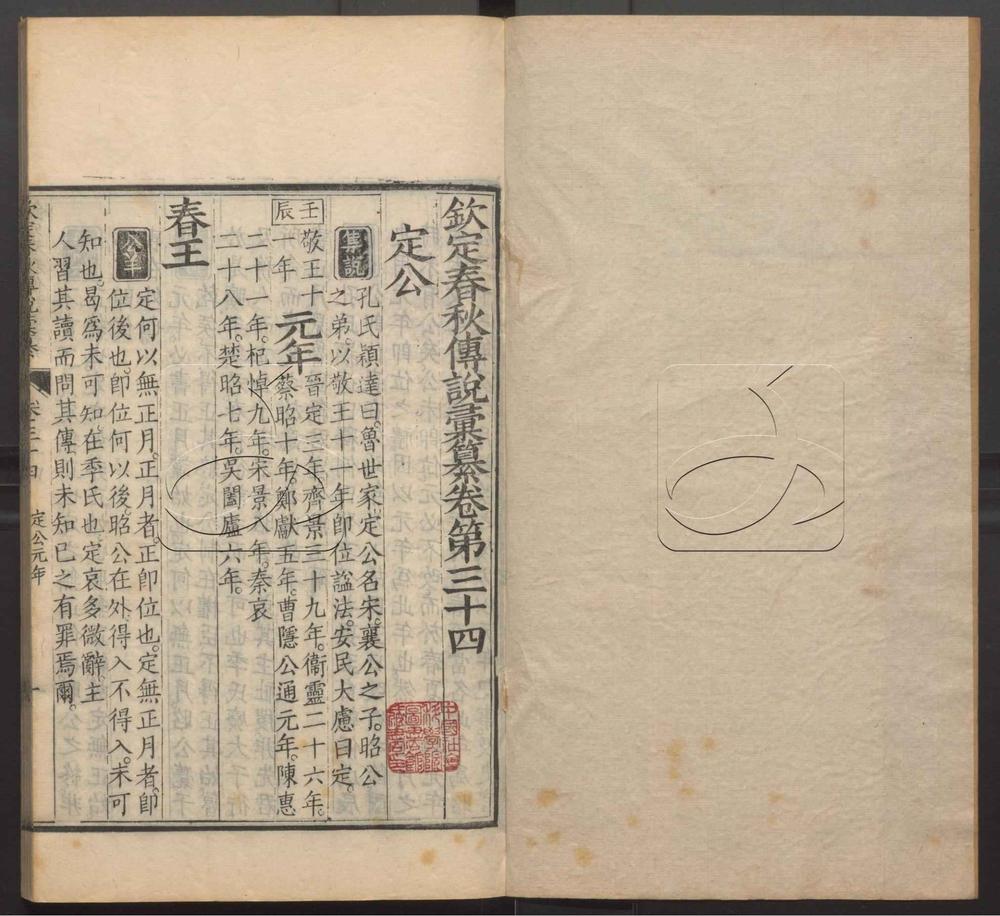 欽定春秋傳說彙纂卷第三十四
定公
集說
孔氏穎達曰魯世家定公名宋襄公之子昭公
之弟以敬王十一年即位諡法安民大慮曰定
壬辰
敬王十
一年
元年
晉定三年齊景三十九年衞靈二十六年
蔡昭十年鄭獻五年曹隱公通元年陳惠
二十一年杞悼九年宋景八年秦哀
二十八年楚昭七年吳闔廬六年
春王
公羊
定何以無正月正月者正即位也定無正月者即
位後也即位何以後昭公在外得入不得入未可
知也曷爲未可知在季氏也定哀多微辭主
人習其讀而問其傳則未知己之有罪焉爾
卷三十四
定公元年
一